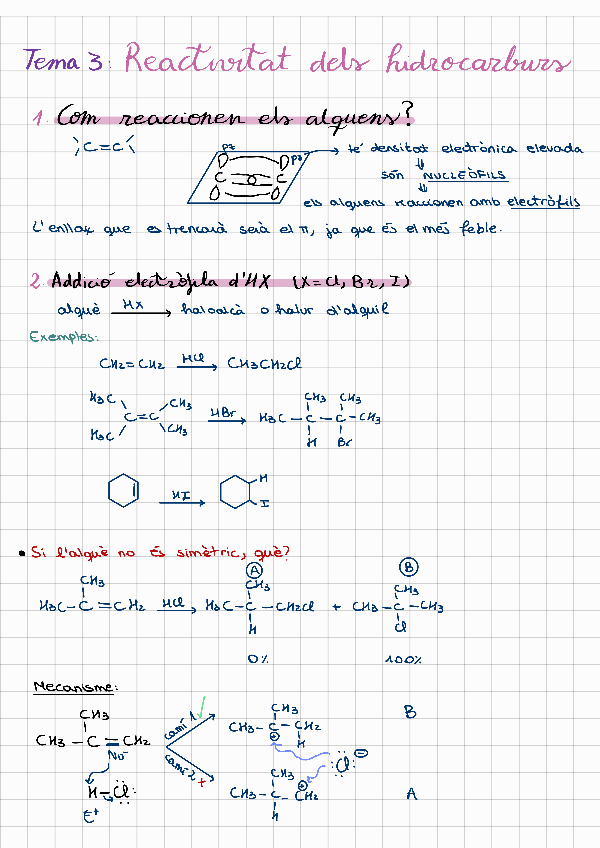 Tema 3: Reactivitat dels hidrocarburs
1. Com reaccionen els alquens?
C=C
pz
pz
C C
→ té densitat electrònica elevada
són NUCLEÒFILS
els alquens reaccionen amb electròfils
L'enllaç que es trencarà serà el π, ja que és el més feble.
2. Addició electròfila d'HX (X=Cl, Br, I)
alquè HX → haloalcà o halur d'alquil
Exemples:
CH2=CH2 HCl → CH3CH2Cl
H3C CH3 CH3 CH3
C=C HBr → H3C-C-C-CH3
H3C CH3 H Br
HI → H I
• Si l'alquè no és simètric, què?
A B
CH3 CH3 CH3
H3C-C=CH2 HCl → H3C-C-CH2Cl + CH3-C-CH3
H Cl
0% 100%
Mecanisme:
CH3 camí 1 ✓ CH3 B
CH3-C=CH2 CH3-C-CH2
Nu⁻ ⊕ H
camí 2 + :Cl: ⊖
H-Cl: CH3 ⊕
E+ CH3-C-CH2 A
H